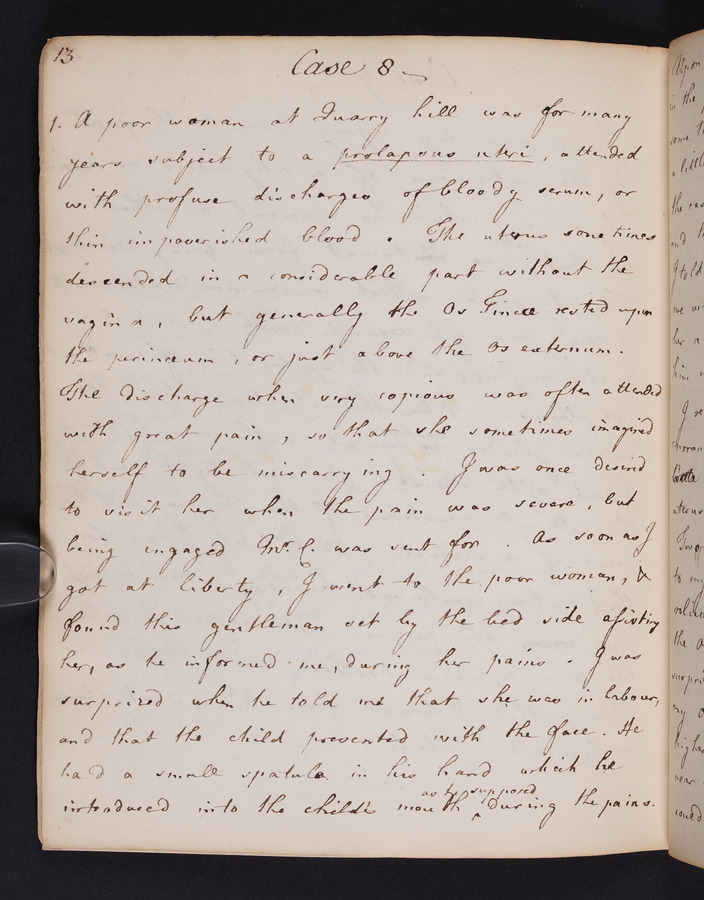 13
Case 8
1. A poor woman at Quarry hill was for many
years subject to a prolapsus uteri, attended
with profuse discharges of bloody serum, or
thin impoverished blood. The uterus sometimes
descended in a considerable part without the
vagina, but generally the Os Tincæ rested upon
the perinæum, or just above the Os externum.
The discharge when very copious was often attended
with great pain, so that she sometimes imagined
herself to be miscarrying. I was once desired
to visit her when the pain was severe, but
being engaged Mr. C. was sent for. As soon as I
got at liberty, I went to the poor woman, &
found this gentleman set by the bed side assisting
her, as he informed me, during her pains. I was
surprized when he told me that she was in labour,
and that the child presented with the face. He
had a small spatula in his hand which he
as he supposed
introduced into the childs mouth ^ during the pains.